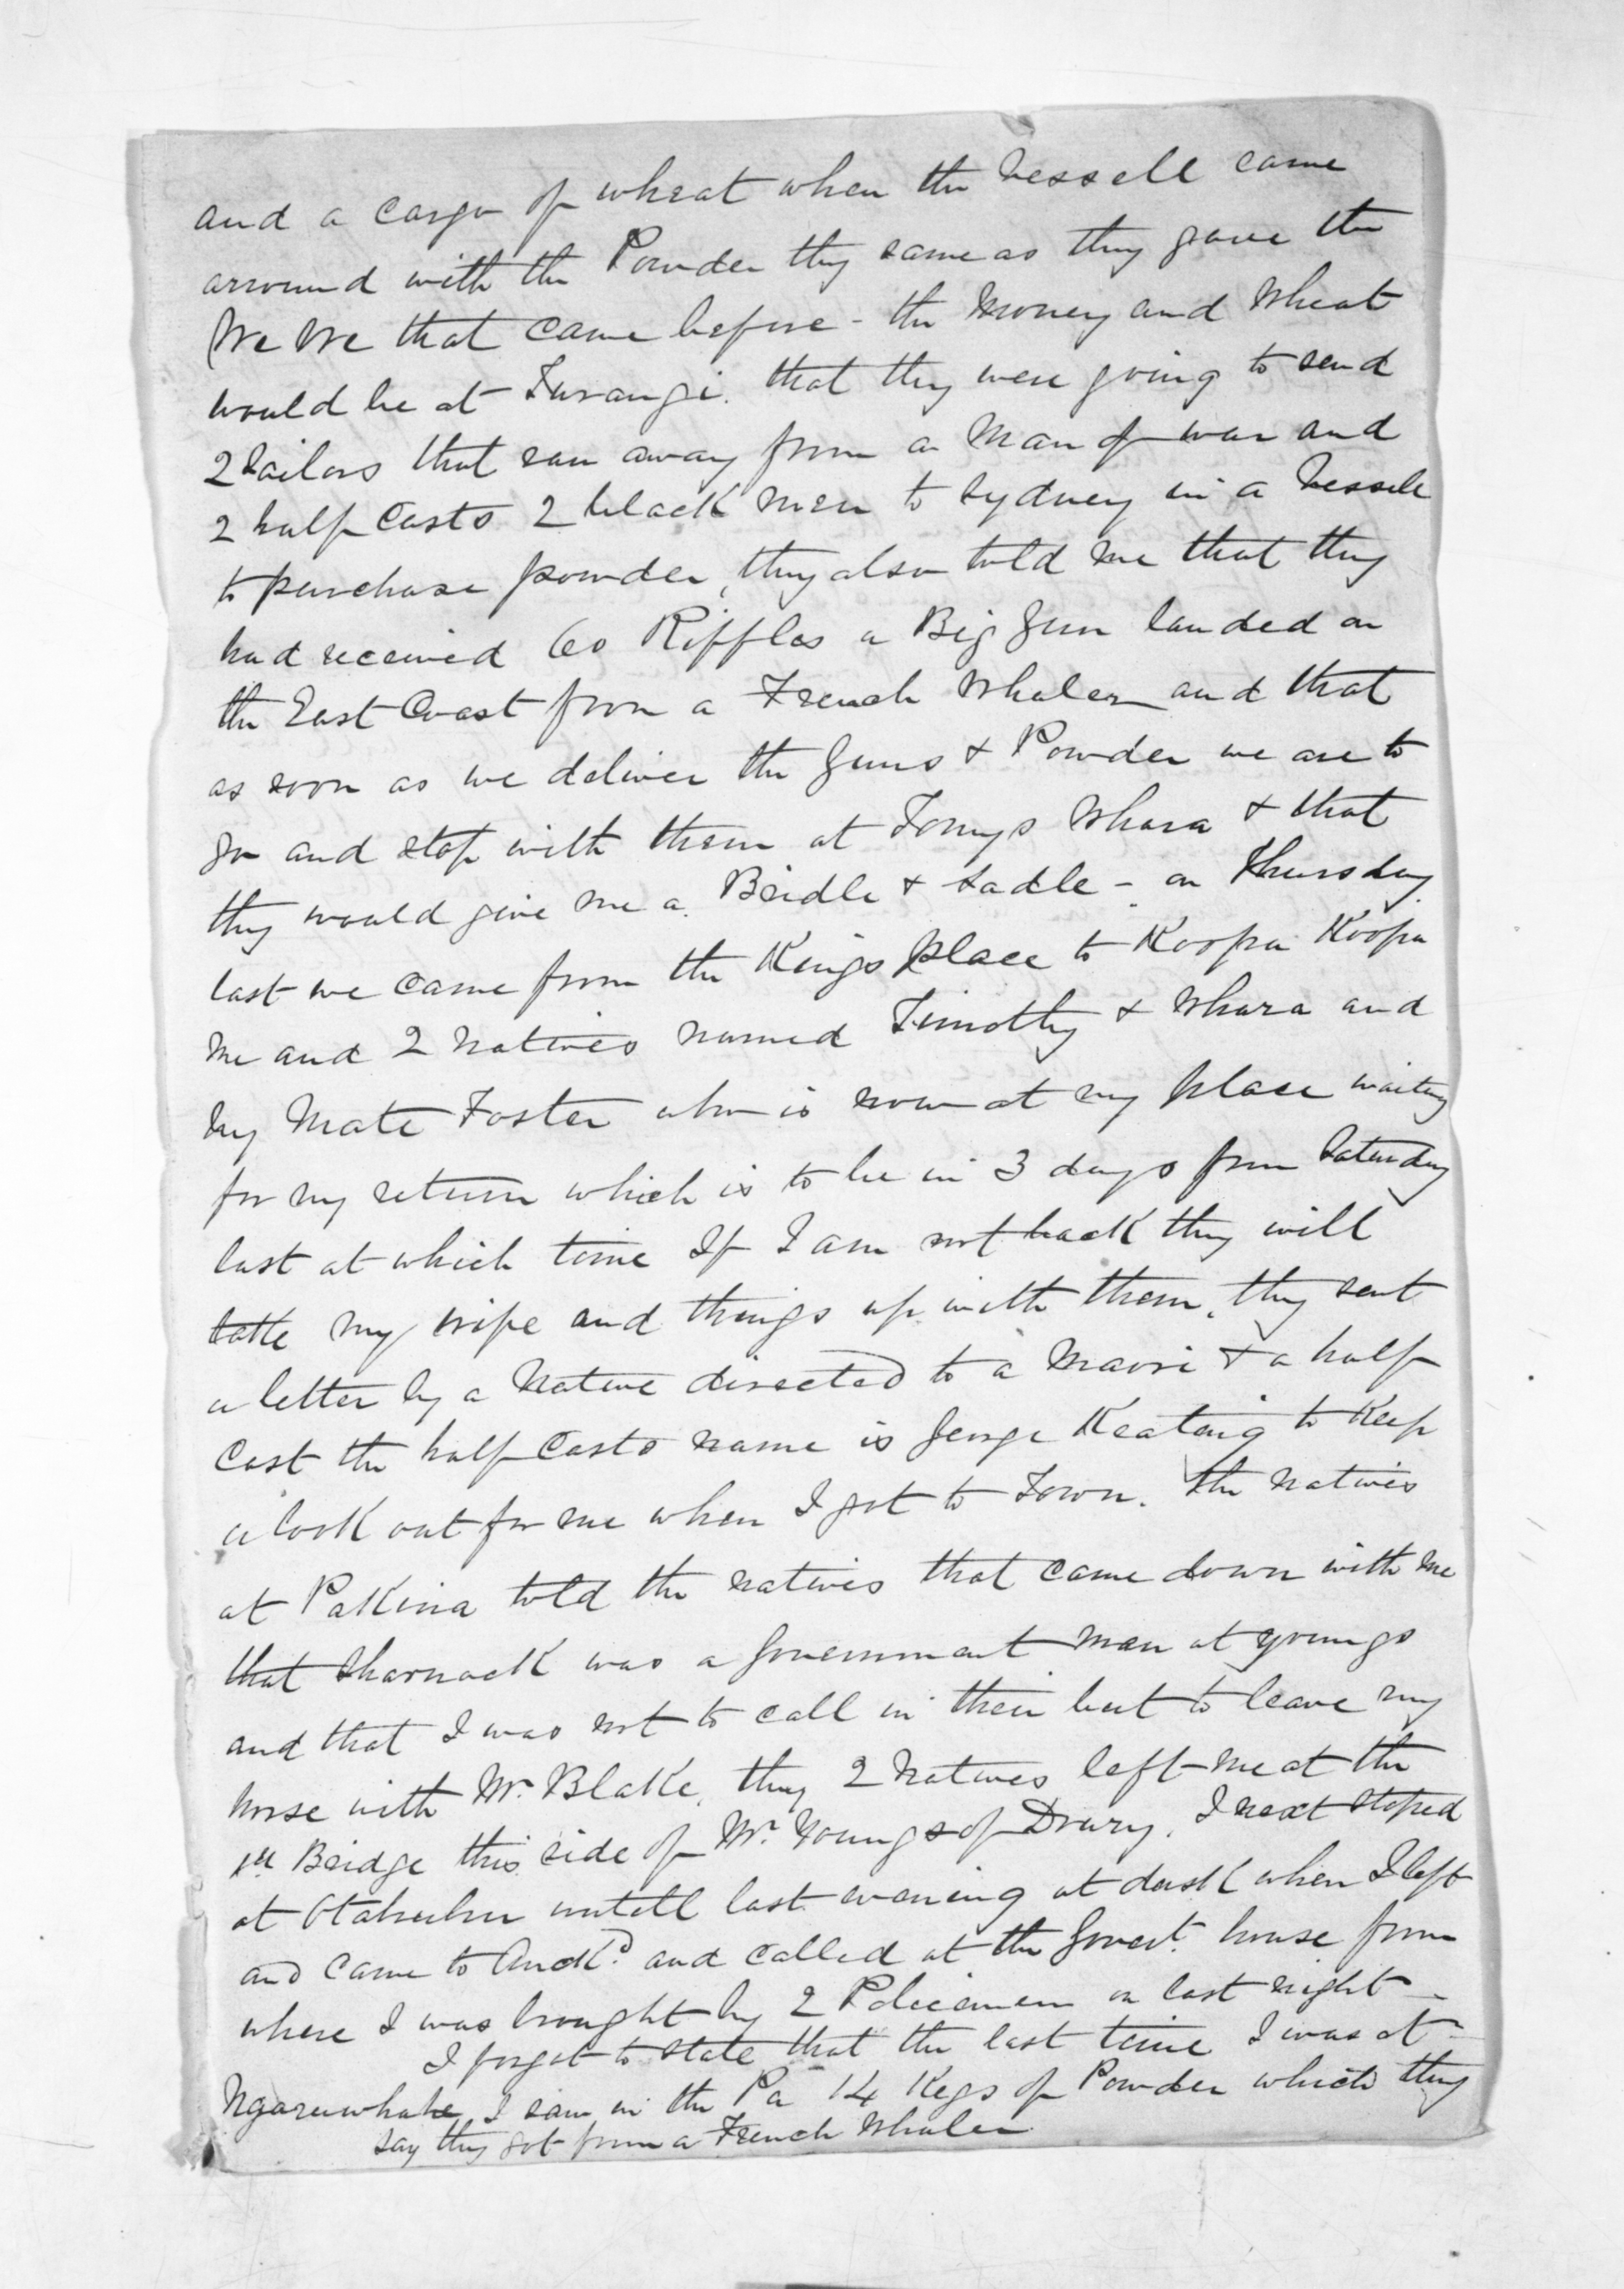 and a cargo of wheat when the Vessell came
arround with the Powder they same as they gave the
We We that came before - the Money and Wheat
would be at Turangi. that they were going to send
2 Sailors that ran away from a Man of war and
2 half Casts 2 black men to Sydney in a Vessell
to purchase powder, they also told me that they
had received 60 Riffles a Big Gun landed on
the East Coast from a French Whaler and that
as soon as we deliver the Guns & Powder we are to
go and stop with them at Tonys Whara & that
they would give me a Bridle & Sadle - on Thursday
last we came from the Kings place to Koopa Koopa
me and 2 Natives named Timothy & Whara and
my Mate Foster who is now at my place waiting
for my return which is to be in 3 days from Saturday
last at which time If I am not back they will
take my wife and things up with them, they sent
a letter by a Native directed to a Maori & a half
Cast the half Casts name is George Keating to Keep
a look out for me when I got to Town. the natives
at PaKina told the natives that came down with me
that Sharnack was a Government man at youngs
and that I was not to call in their but to leave my
horse with Mr. Blake, they 2 Natives left me at the
1st Bridge this side of Mr. Youngs of Drury. I next stoped
at Otahuhu untill last evening at dusk when I left
and came to Auckd. and called at the Govert. house from
where I was brought by 2 Policemen on last night -
I forgot to state that the last time I was at
Ngaruwhahe I saw in the Pa 14 Kegs of Powder which they
say they got from a French Whaler